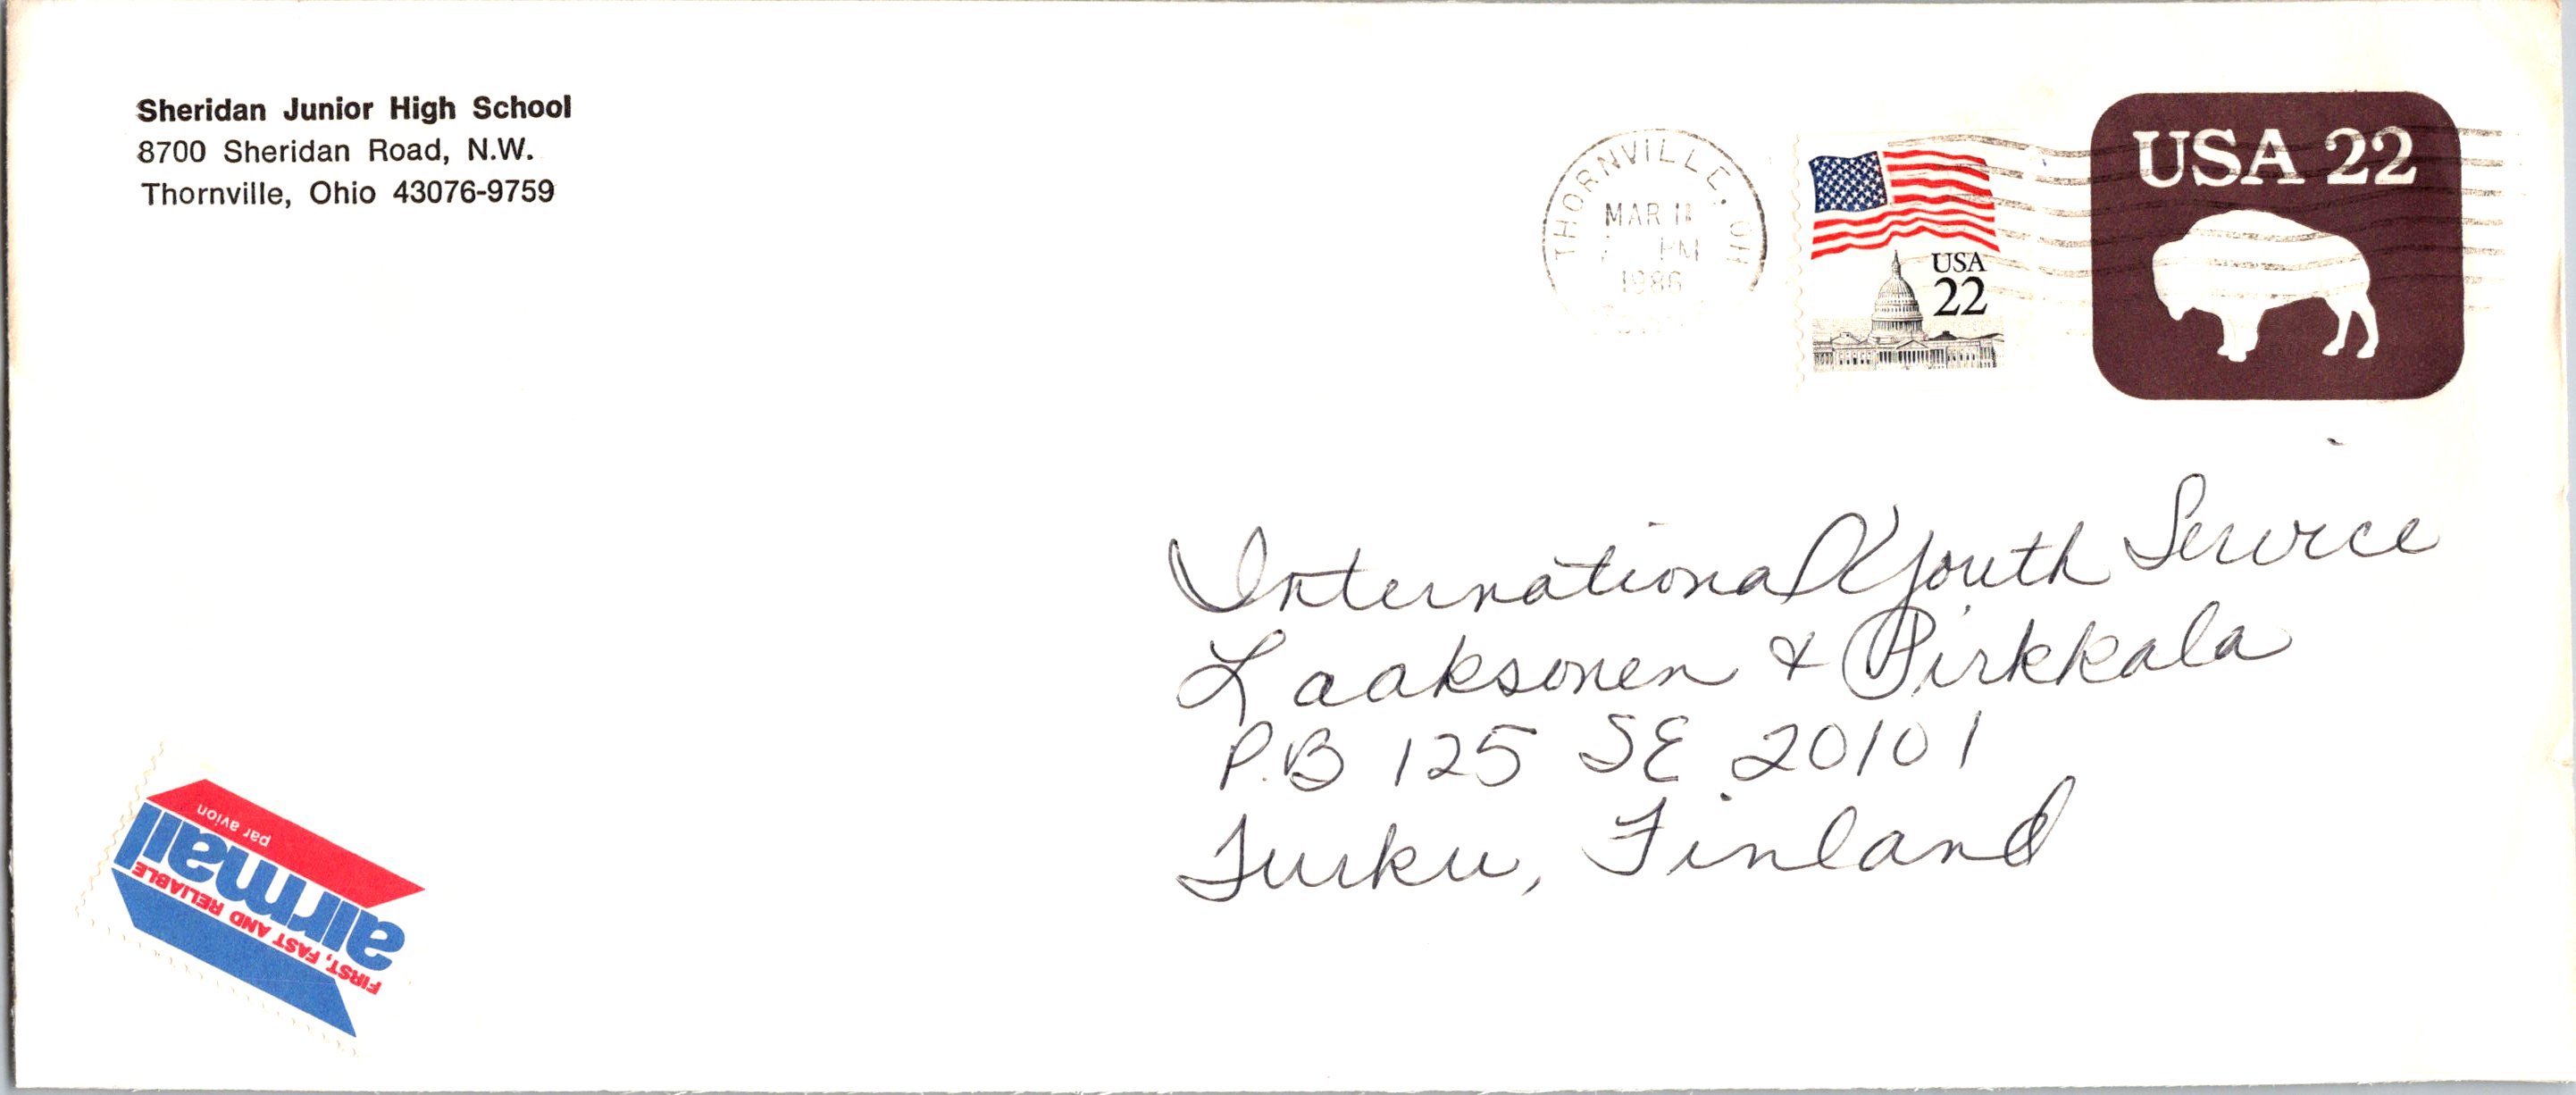 Sheridan Junior High School
8700 Sheridan Road, N.W.
Thornville, Ohio 43076-9759
THORNVILLE, OH
MAR 11
PM
1986
USA
22
USA 22
International Youth Service
Laaksonen & Pirkkala
P.B 125 SE 20101
Turku, Finland
par avion
airmail
FIRST, FAST AND RELIABLE